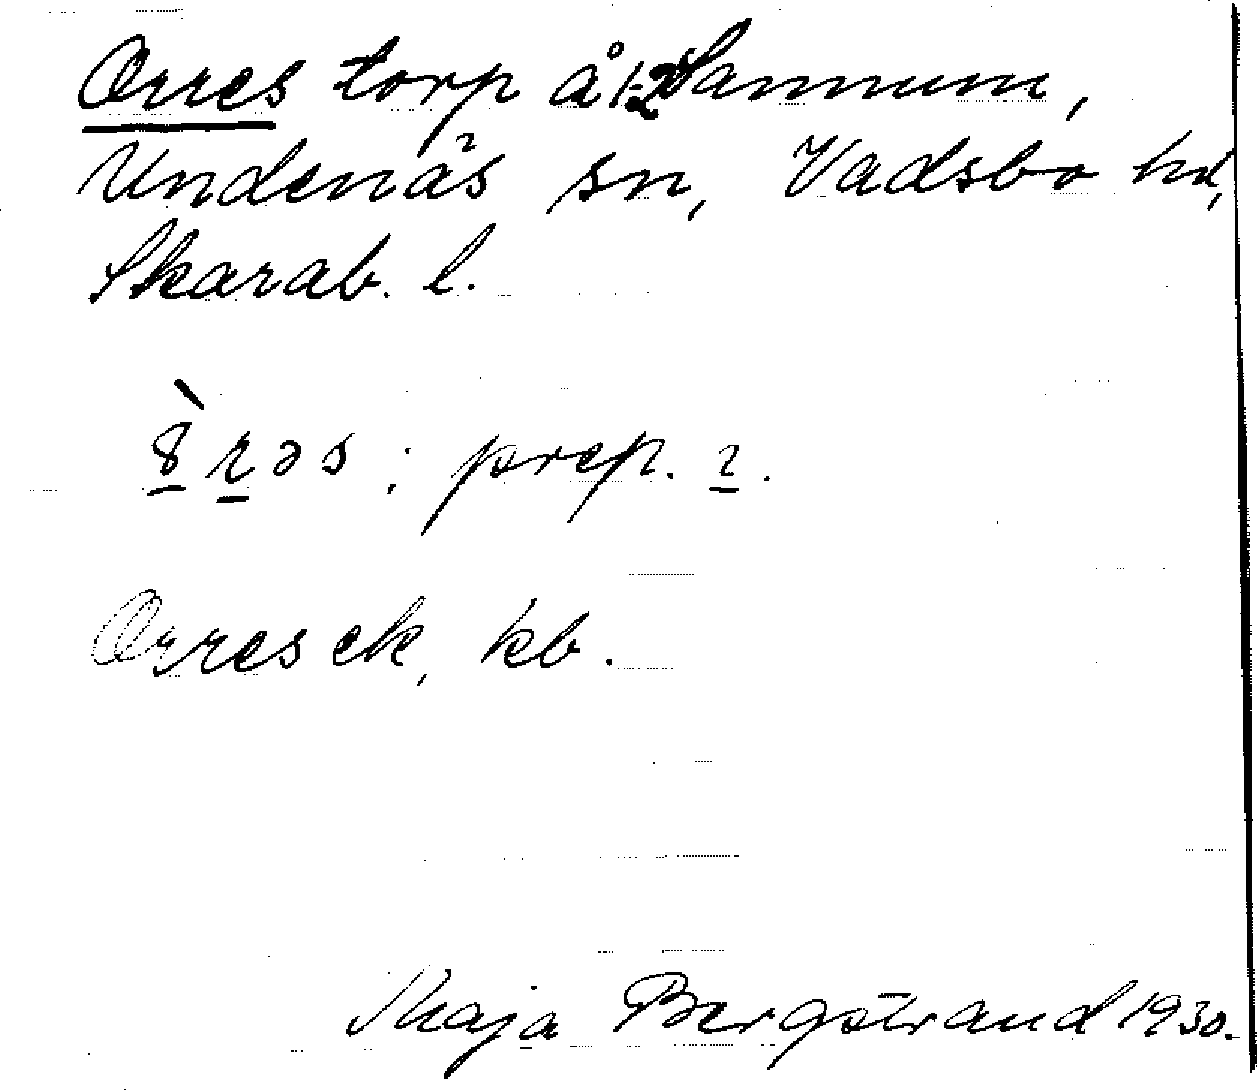 Orres torp å 1-2 Sannum,
Undenäs sn, Vadsbo hd,
Skarab. l.
prep. ɩ.
Orres ek, kb.
Maja Bergstrand 1930.